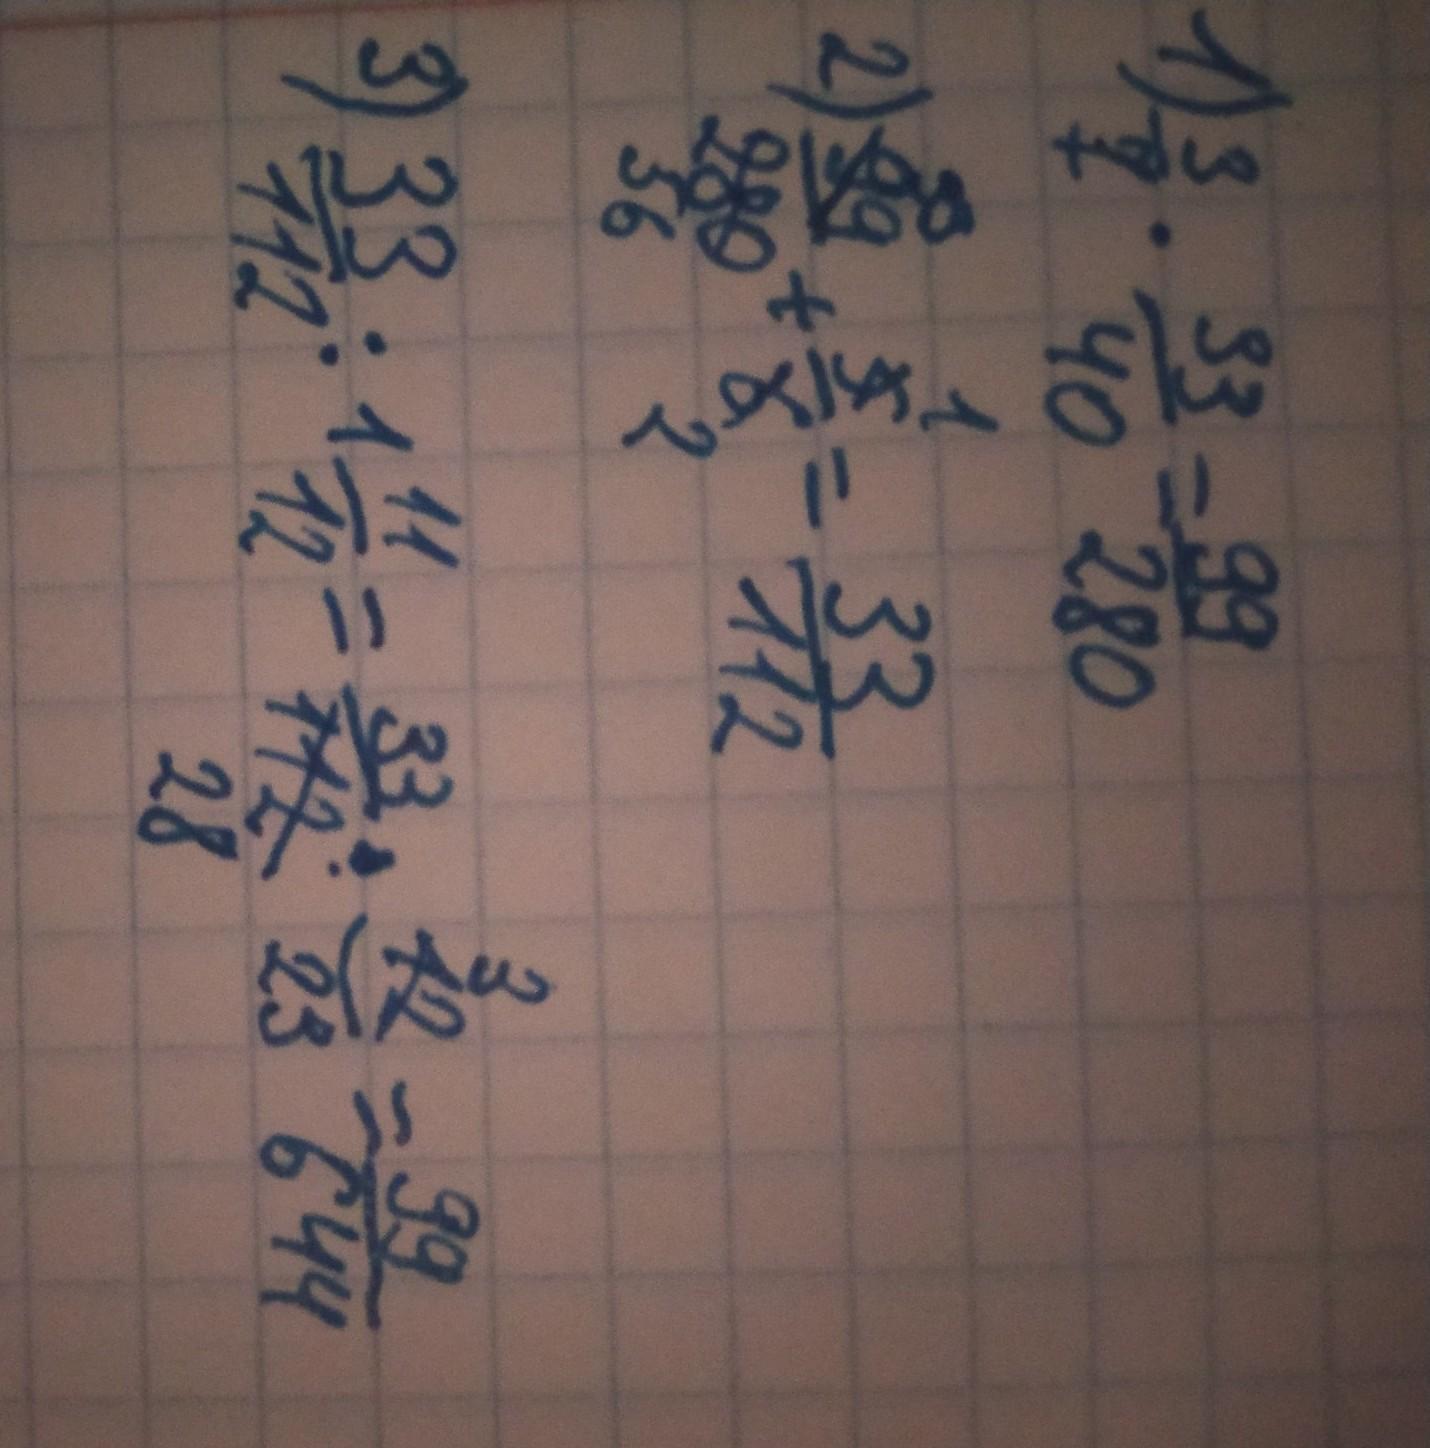 1) 3/7 · 33/40 = 99/280
2) 99/280 + 5/6 = 33/112
33
56 1 2
3) 33/112 : 1 11/12 = 33/112 · 12/23 = 99/644
28 3